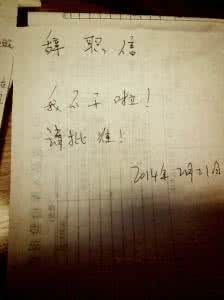 辞职信
我不干啦！
请批准！
2014年2月21日